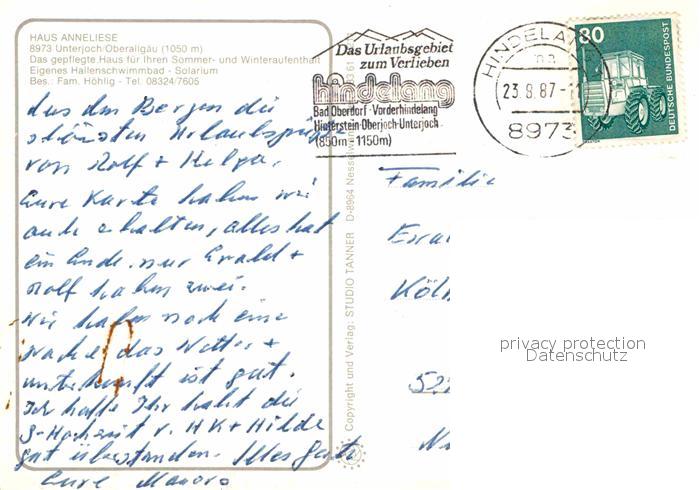 HAUS ANNELIESE
8973 Unterjoch/Oberallgäu (1050 m)
Das gepflegte Haus für Ihren Sommer- und Winteraufenthalt
Eigenes Hallenschwimmbad - Solarium
Bes.: Fam. Höhlig - Tel. 08324/7605
Aus den Bergen die
schönsten Urlaubsgrüße
von Rolf + Helga.
Eure Karte haben wir
auch erhalten, alles hat
ein Ende. nur Ewald +
Rolf haben zwei.
Wir haben noch eine
Woche das Wetter +
unterkunft ist gut.
Ich hoffe Ihr habt die
S-Hochzeit v. HK + Hilde
gut überstanden. Alles Gute
Eure
Copyright und Verlag: STUDIO TANNER D-8964 Nesselwang
Das Urlaubsgebiet
zum Verlieben
hindelang
Bad Oberdorf · Vorderhindelang
Hinterstein · Oberjoch · Unterjoch
(850m - 1150m)
HINDELANG
23.9.87-
8973
80
DEUTSCHE BUNDESPOST
Familie
Köln
privacy protection
Datenschutz